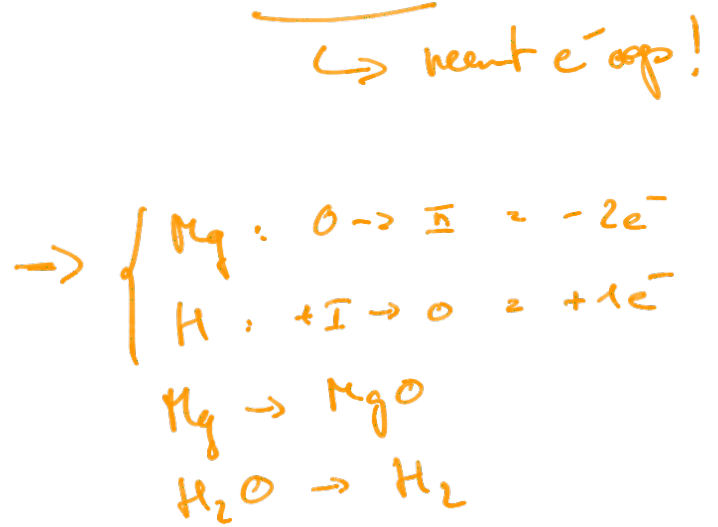 ↳ neemt e⁻ op!
→ { Mg : 0 → II = -2e⁻
H : +I → 0 = +1e⁻
Mg → MgO
H₂O → H₂